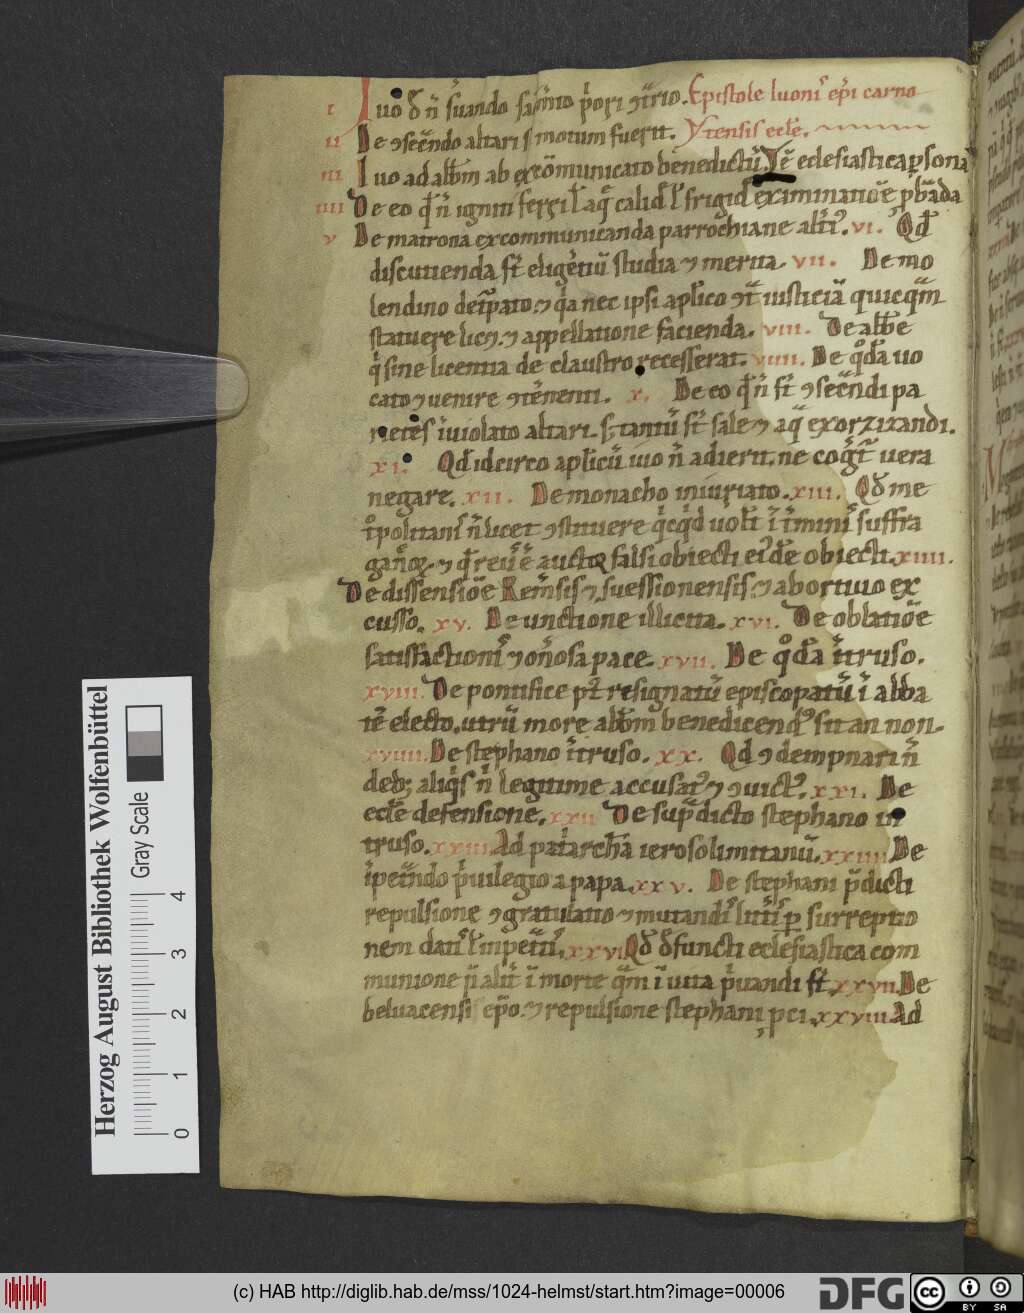 I Iuo ꝺ n̄ s̾uando sac̾m̄to p̾ori ꝯt̾rio. Epistole Iuonis ep̄i carno
II De ꝯsec̄ndo altari si motum fuerit. Ytensis eccl̄e.
III Iuo ad abb̄m ab excōmunicato benedictū. Vt̄ ecclesiastica ꝑsona
IIII De eo qd̄ n̄ igniti ferri l̄ aq̄ calid l̄ frigid examinatiōe ꝓbāda
V De matrona excommunicanda parrochiane alt̾i᷒. VI. Qd̄
discutienda st̄ eligētiū studia ⁊ merita. VII. De mo
lendino ⁊ qa nec ipsi ap̄lico ꝯt̄ iusticiā quicq̄m
statuere lic⁊. ⁊ appellatione facienda. VIII. De abb̄e
q̾ sine licentia de claustro recesserat. VIIII. De qd̄a uo
cato ⁊ uenire ꝯtēnenti. X. De eo qd̄ n̄ st̄ ꝯsec̄ndi pa
rietes īuiolato altari. s; tantū st̄ sale ⁊ aq̄ exorzizandi.
XI. Qd̄ idcirco ap̄licū uiō n̄ adierit. ne cog̾et̄ uera
negare. XII. De monacho iniuriato. XIII. Qꝺ me
t̊politanis n̄ licet ꝯstituere q̾cq̾d uoluerit ī t̾minis suffra
ganeoꝝ. ⁊ auctor falsi obiecti ei᷒de obiecti. XIIII.
De dissensiōe Remēsis ⁊ suessionensis. ⁊ abortiuo ex
cusso. XV. De unctione illicita. XVI. De oblatiōe
satisfactionis ⁊ on̾osa pace. XVII. De qd̄a ītruso.
XVIII. De pontifice p᷒t resignatū episcopatū ī abba
tē electo. utrū more abb̄m benedicend᷒ sit an non.
XVIIII. De stephano ītruso. XX. Qd ꝯdempnari n̄
deb; aliq̾s n̄ legitime accusat᷒ ⁊ ꝯuict᷒. XXI. De
eccl̄e defensione. XXII De sup̄dicto stephano in
truso. XXIII. Ad pat̾archā ierosolimitanū. XXIIII De
īpet̄ndo p̾uilegio a papa. XXV. De stephani p̄dicti
repulsione ꝯgratulatio ⁊ mutandis litt̾is ꝑ surreptio
nem datis l̄ inpet̄tis. XXVI Qꝺ ꝺfuncti ecclesiastica com
munione ī morte q̄m ī uita p̾uandi st̄. XXVII. De
beluacensi ep̄o. ⁊ repulsione stephani, XXVIII Ad
Herzog August Bibliothek Wolfenbüttel
Gray Scale
0 1 2 3 4
(c) HAB http://diglib.hab.de/mss/1024-helmst/start.htm?image=00006
DFG
cc
BY SA